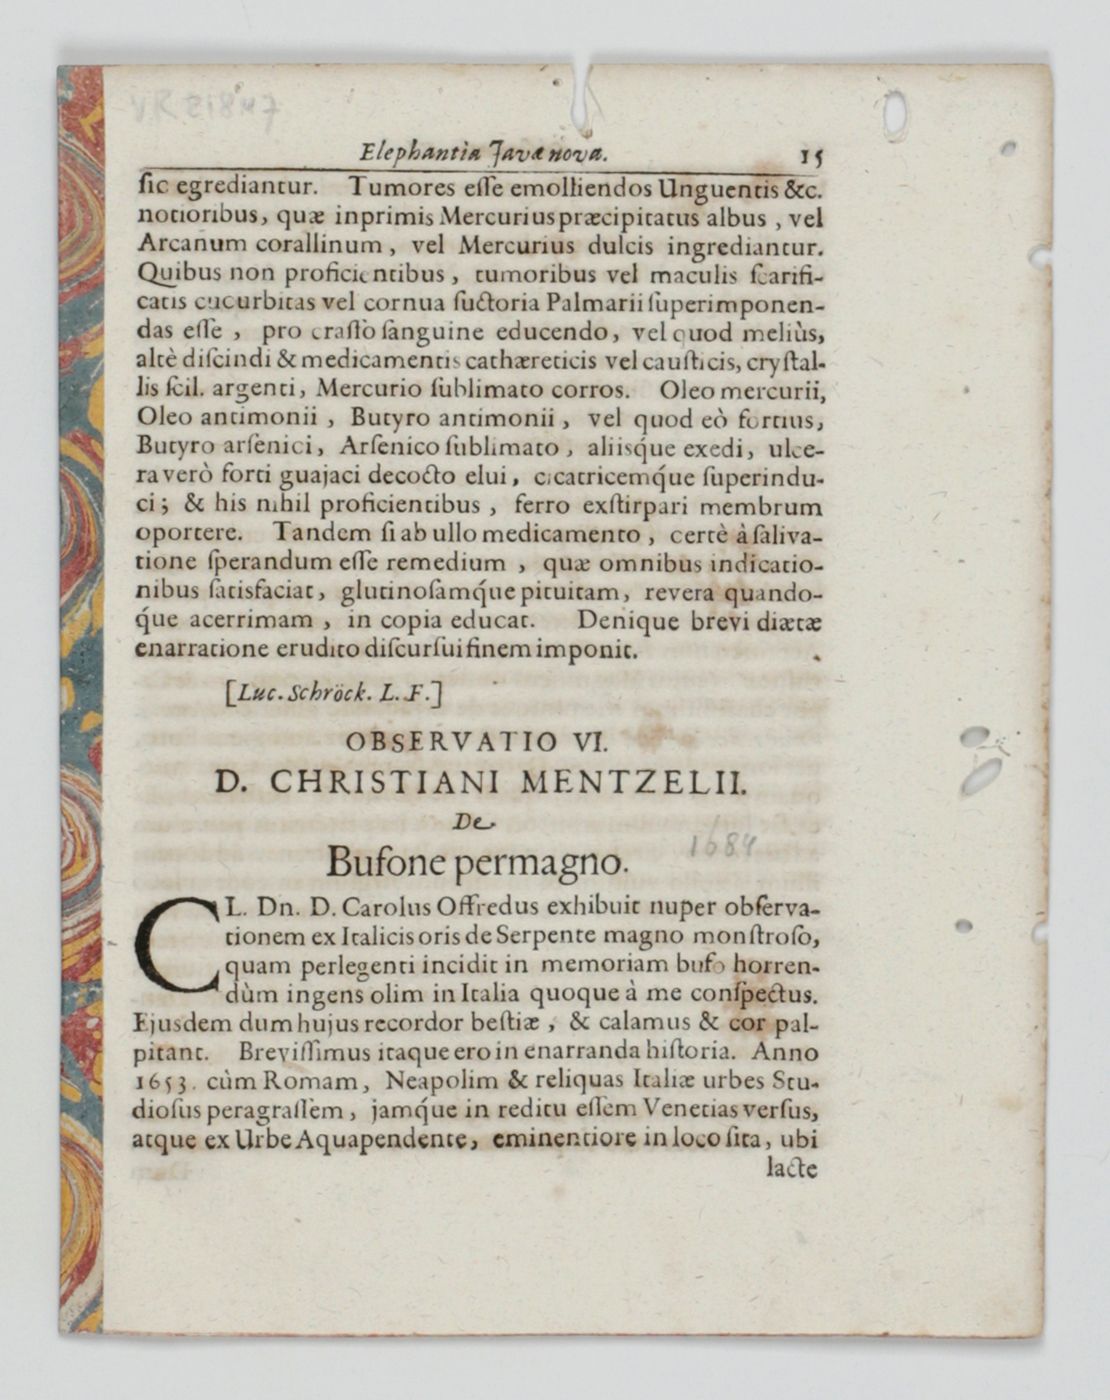 VR 21847
Elephantia Javæ nova. 15
ſic egrediantur. Tumores eſſe emolliendos Unguentis &c.
notioribus, quæ inprimis Mercurius præcipitatus albus, vel
Arcanum corallinum, vel Mercurius dulcis ingrediantur.
Quibus non proficientibus, tumoribus vel maculis ſcarifi-
catis cucurbitas vel cornua ſuctoria Palmarii ſuperimponen-
das eſſe, pro craſſo ſanguine educendo, vel quod meliùs,
altè diſcindi & medicamentis cathæreticis vel cauſticis, cryſtal-
lis ſcil. argenti, Mercurio ſublimato corros. Oleo mercurii,
Oleo antimonii, Butyro antimonii, vel quod eò fortius,
Butyro arſenici, Arſenico ſublimato, aliisq́ue exedi, ulce-
ra verò forti guajaci decocto elui, cicatricemq́ue ſuperindu-
ci; & his nihil proficientibus, ferro exſtirpari membrum
oportere. Tandem ſi ab ullo medicamento, certè à ſaliva-
tione ſperandum eſſe remedium, quæ omnibus indicatio-
nibus ſatisfaciat, glutinoſamq́ue pituitam, revera quando-
q́ue acerrimam, in copia educat. Denique brevi diætæ
enarratione erudito diſcurſui finem imponit.
[Luc. Schröck. L. F.]
OBSERVATIO VI.
D. CHRISTIANI MENTZELII.
De
1684
Bufone permagno.
CL. Dn. D. Carolus Offredus exhibuit nuper obſerva-
tionem ex Italicis oris de Serpente magno monſtroſo,
quam perlegenti incidit in memoriam bufo horren-
dùm ingens olim in Italia quoque à me conſpectus.
Ejusdem dum hujus recordor beſtiæ, & calamus & cor pal-
pitant. Breviſſimus itaque ero in enarranda hiſtoria. Anno
1653. cùm Romam, Neapolim & reliquas Italiæ urbes Stu-
dioſus peragraſſem, jamq́ue in reditu eſſem Venetias verſus,
atque ex Urbe Aquapendente, eminentiore in loco ſita, ubi
lacte